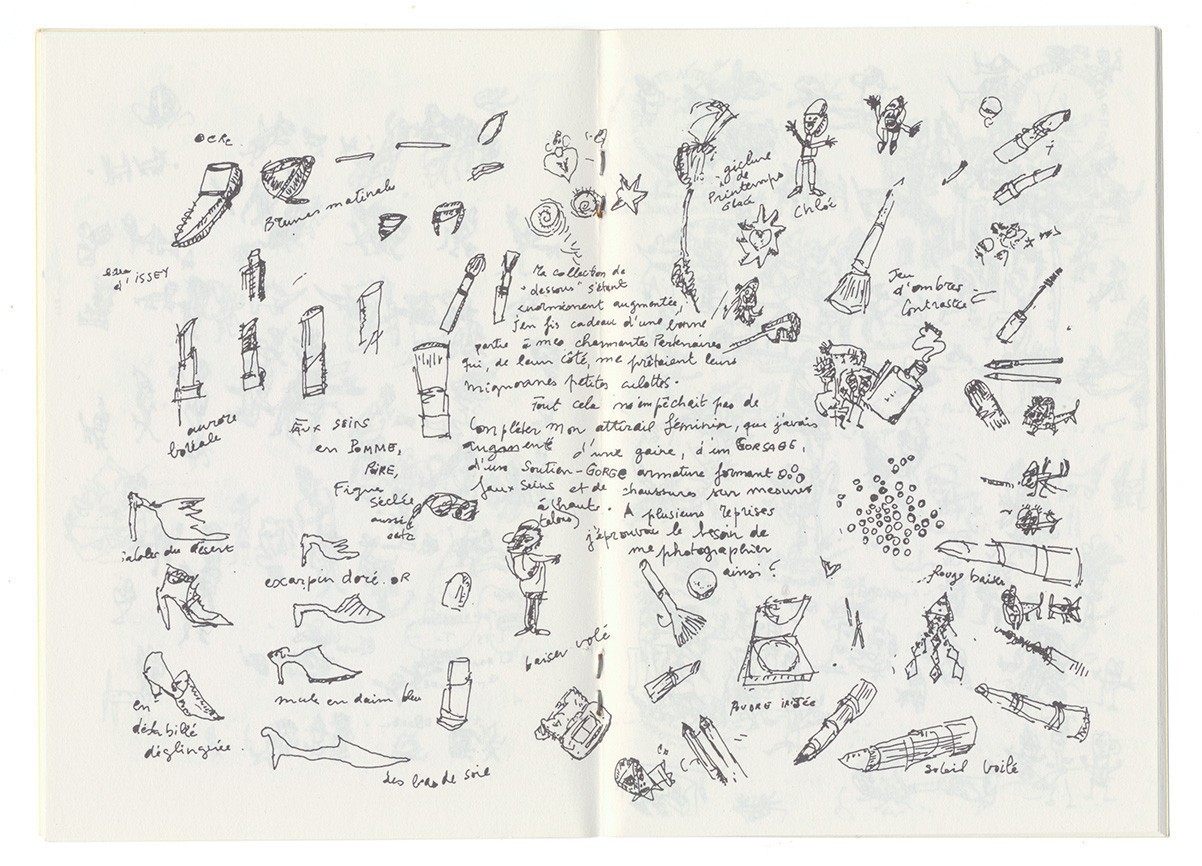 OCRE
Brumes matinales
d'ISSEY
aurore
boréale
Faux SEINS
en POMME,
POIRE,
Figue
séchée
aussi
escarpin doré. OR
mule en daim bleu
en
déshabillé
déglinguée.
des bas de soie
baiser volé
Ma collection de
"dessous" s'étant
énormément augmentée,
j'en fis cadeau d'une bonne
partie à mes charmantes Partenaires
qui, de leur côté, me prêtaient leurs
mignonnes petites culottes.
Tout cela n'empêchait pas de
Compléter mon attirail féminin, que j'avais
augmenté d'une gaine, d'un CORSAGE,
d'un Soutien-GORGE armature formant
faux Seins et de chaussures sur mesures
à hauts
talons. A plusieurs reprises
j'éprouvai le besoin de
me photographier
ainsi!
giclure
de
Printemps
Glacé
Chloé
Jeu
d'ombres
Contrasté
Rouge baiser
POUDRE IRISÉE
soleil voilé